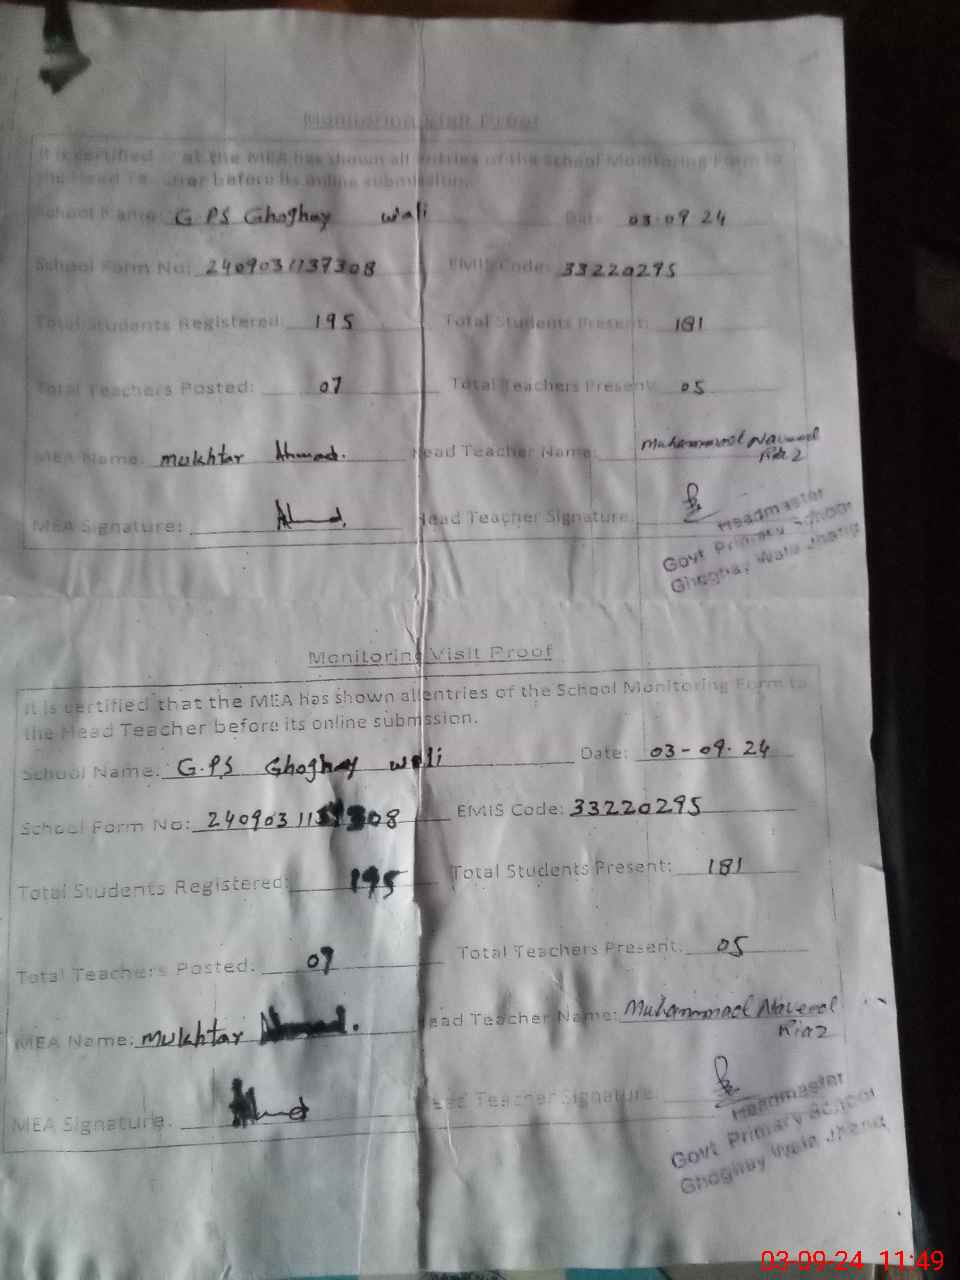 Monitoring Visit Proof
It is certified that the MEA has shown all entries of the School Monitoring Form to
the Head Teacher before its online submission.
School Name: G.PS Ghoghay wali Date: 03-09-24
School Form No: 2409031137308 EMIS Code: 33220295
Total Students Registered: 195 Total Students Present: 181
Total Teachers Posted: 07 Total Teachers Present: 05
MEA Name: Mukhtar Ahmad. Head Teacher Name: Muhammad Naveed
Riaz
MEA Signature: Head Teacher Signature:
Headmaster
Govt Primary School
Ghoghay Wala Jhang
Monitoring Visit Proof
It is certified that the MEA has shown all entries of the School Monitoring Form to
the Head Teacher before its online submssion.
School Name: G.PS Ghoghay wali Date: 03-09-24
School Form No: 2409031137308 EMIS Code: 33220295
Total Students Registered: 195 Total Students Present: 181
Total Teachers Posted: 07 Total Teachers Present: 05
MEA Name: Mukhtar Ahmad. Head Teacher Name: Muhammad Naveed
Riaz
MEA Signature: Head Teacher Signature:
Headmaster
Govt Primary School
Ghoghay Wala Jhang
03-09-24 11:49